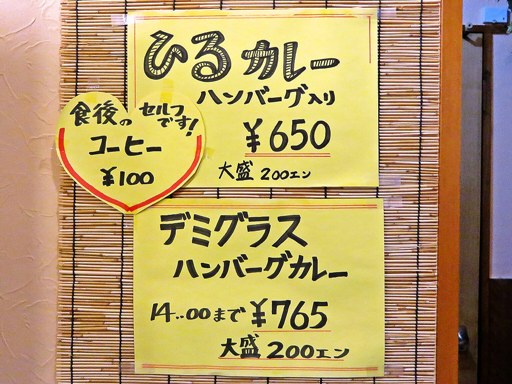 ひるカレー
ハンバーグ入り
¥650
大盛200エン
食後の
セルフです!
コーヒー
¥100
デミグラス
ハンバーグカレー
14:00まで ¥765
大盛200エン